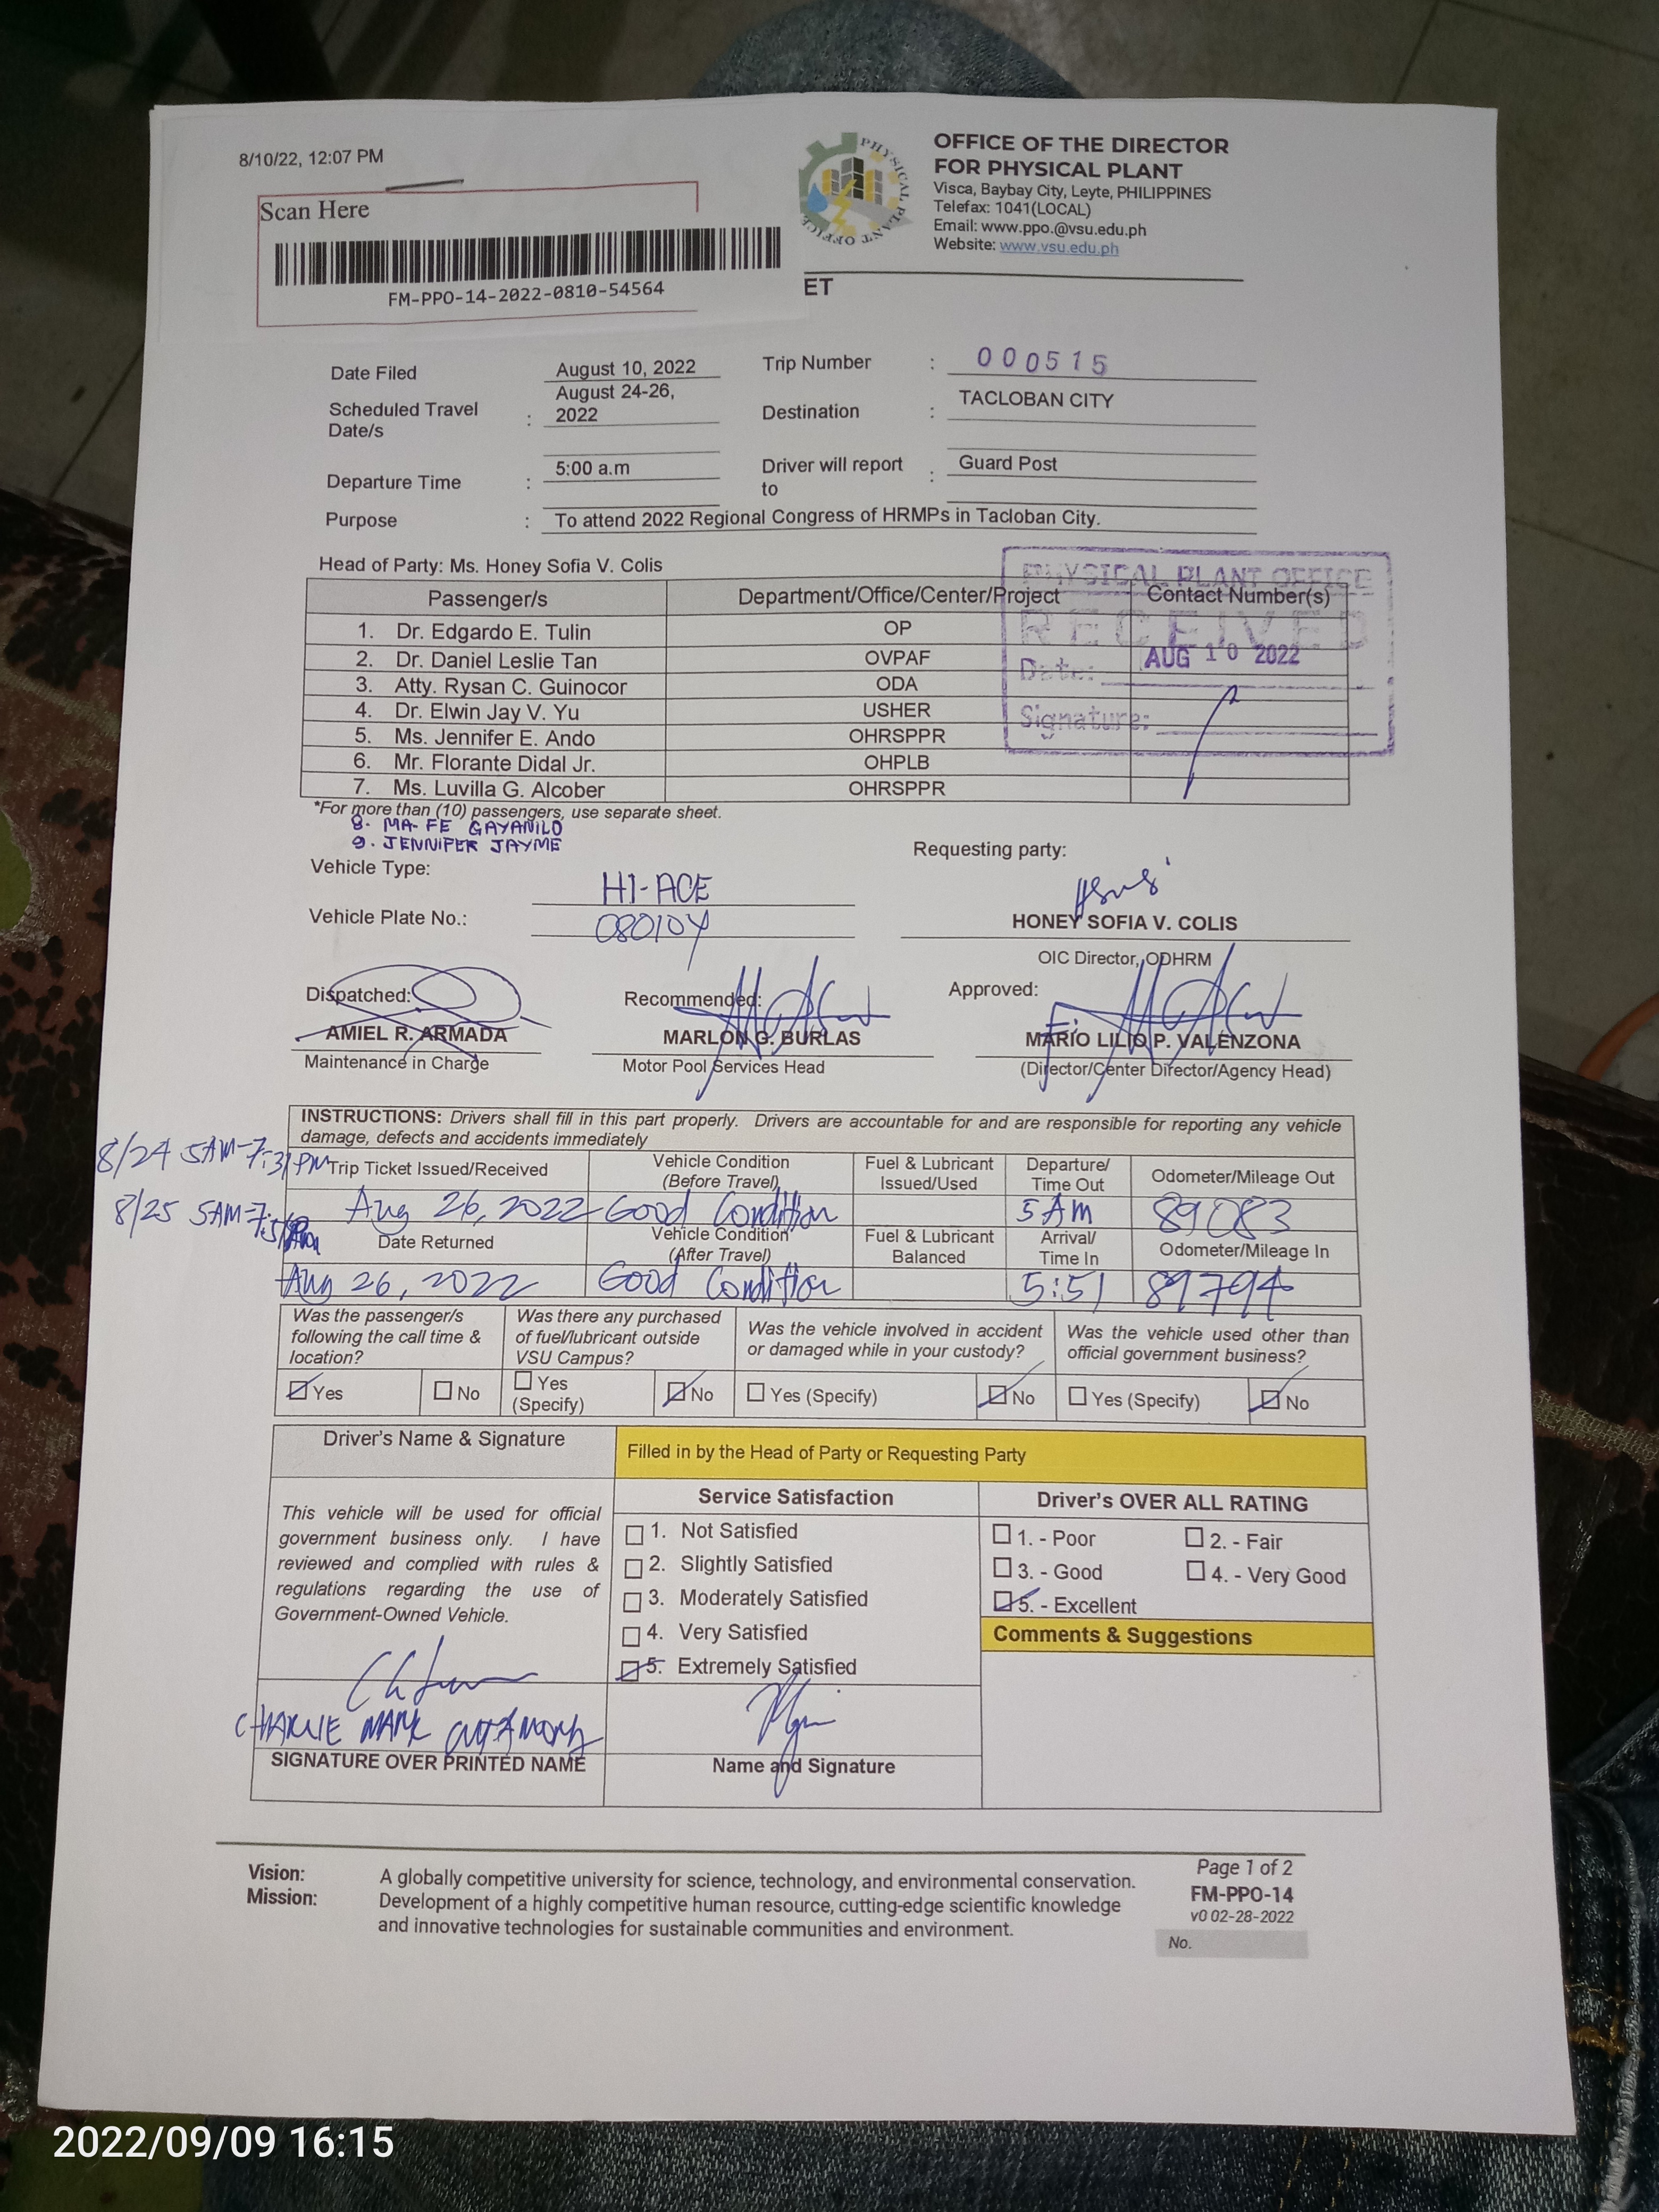 8/10/22, 12:07 PM
Scan Here
FM-PPO-14-2022-0810-54564
PHYSICAL PLANT OFFICE
OFFICE OF THE DIRECTOR
FOR PHYSICAL PLANT
Visca, Baybay City, Leyte, PHILIPPINES
Telefax: 1041(LOCAL)
Email: www.ppo.@vsu.edu.ph
Website: www.vsu.edu.ph
ET
Date Filed August 10, 2022 Trip Number : 000515
Scheduled Travel Date/s : August 24-26, 2022 Destination : TACLOBAN CITY
Departure Time : 5:00 a.m Driver will report to : Guard Post
Purpose : To attend 2022 Regional Congress of HRMPs in Tacloban City.
Head of Party: Ms. Honey Sofia V. Colis
PHYSICAL PLANT OFFICE
RECEIVED
Date: AUG 10 2022
Signature:
Passenger/s Department/Office/Center/Project Contact Number(s)
1. Dr. Edgardo E. Tulin OP
2. Dr. Daniel Leslie Tan OVPAF
3. Atty. Rysan C. Guinocor ODA
4. Dr. Elwin Jay V. Yu USHER
5. Ms. Jennifer E. Ando OHRSPPR
6. Mr. Florante Didal Jr. OHPLB
7. Ms. Luvilla G. Alcober OHRSPPR
*For more than (10) passengers, use separate sheet.
8. MA. FE GAYANILO
9. JENNIFER JAYME
Vehicle Type: HI-ACE
Vehicle Plate No.: 080104
Requesting party:
HONEY SOFIA V. COLIS
OIC Director, ODHRM
Dispatched: Recommended: Approved:
AMIEL R. ARMADA MARLON G. BURLAS MARIO LILIO P. VALENZONA
Maintenance in Charge Motor Pool Services Head (Director/Center Director/Agency Head)
INSTRUCTIONS: Drivers shall fill in this part properly. Drivers are accountable for and are responsible for reporting any vehicle
damage, defects and accidents immediately
8/24 5AM-7:31PM
8/25 5AM-
Trip Ticket Issued/Received Vehicle Condition (Before Travel) Fuel & Lubricant Issued/Used Departure/ Time Out Odometer/Mileage Out
Aug 26, 2022 Good Condition 5AM 89083
Date Returned Vehicle Condition (After Travel) Fuel & Lubricant Balanced Arrival/ Time In Odometer/Mileage In
Aug 26, 2022 Good Condition 5:51 89794
Was the passenger/s following the call time & location? Was there any purchased of fuel/lubricant outside VSU Campus? Was the vehicle involved in accident or damaged while in your custody? Was the vehicle used other than official government business?
Yes No Yes (Specify) No Yes (Specify) No Yes (Specify) No
Driver's Name & Signature
Filled in by the Head of Party or Requesting Party
This vehicle will be used for official
government business only. I have
reviewed and complied with rules &
regulations regarding the use of
Government-Owned Vehicle.
CHARLIE MARK
SIGNATURE OVER PRINTED NAME
Service Satisfaction
1. Not Satisfied
2. Slightly Satisfied
3. Moderately Satisfied
4. Very Satisfied
5. Extremely Satisfied
Name and Signature
Driver's OVER ALL RATING
1. - Poor 2. - Fair
3. - Good 4. - Very Good
5. - Excellent
Comments & Suggestions
Vision: A globally competitive university for science, technology, and environmental conservation.
Mission: Development of a highly competitive human resource, cutting-edge scientific knowledge
and innovative technologies for sustainable communities and environment.
Page 1 of 2
FM-PPO-14
v0 02-28-2022
No.
2022/09/09 16:15